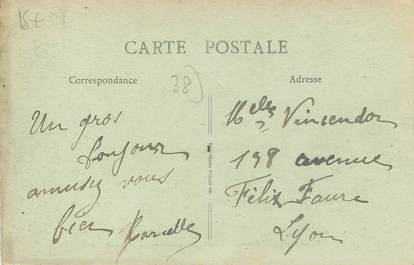 15€
CARTE POSTALE
Correspondance
38)
Adresse
Un gros
bonjour
amusez vous
bien Marcelle
Melles Vincendon
198 avenue
Félix Faure
Lyon